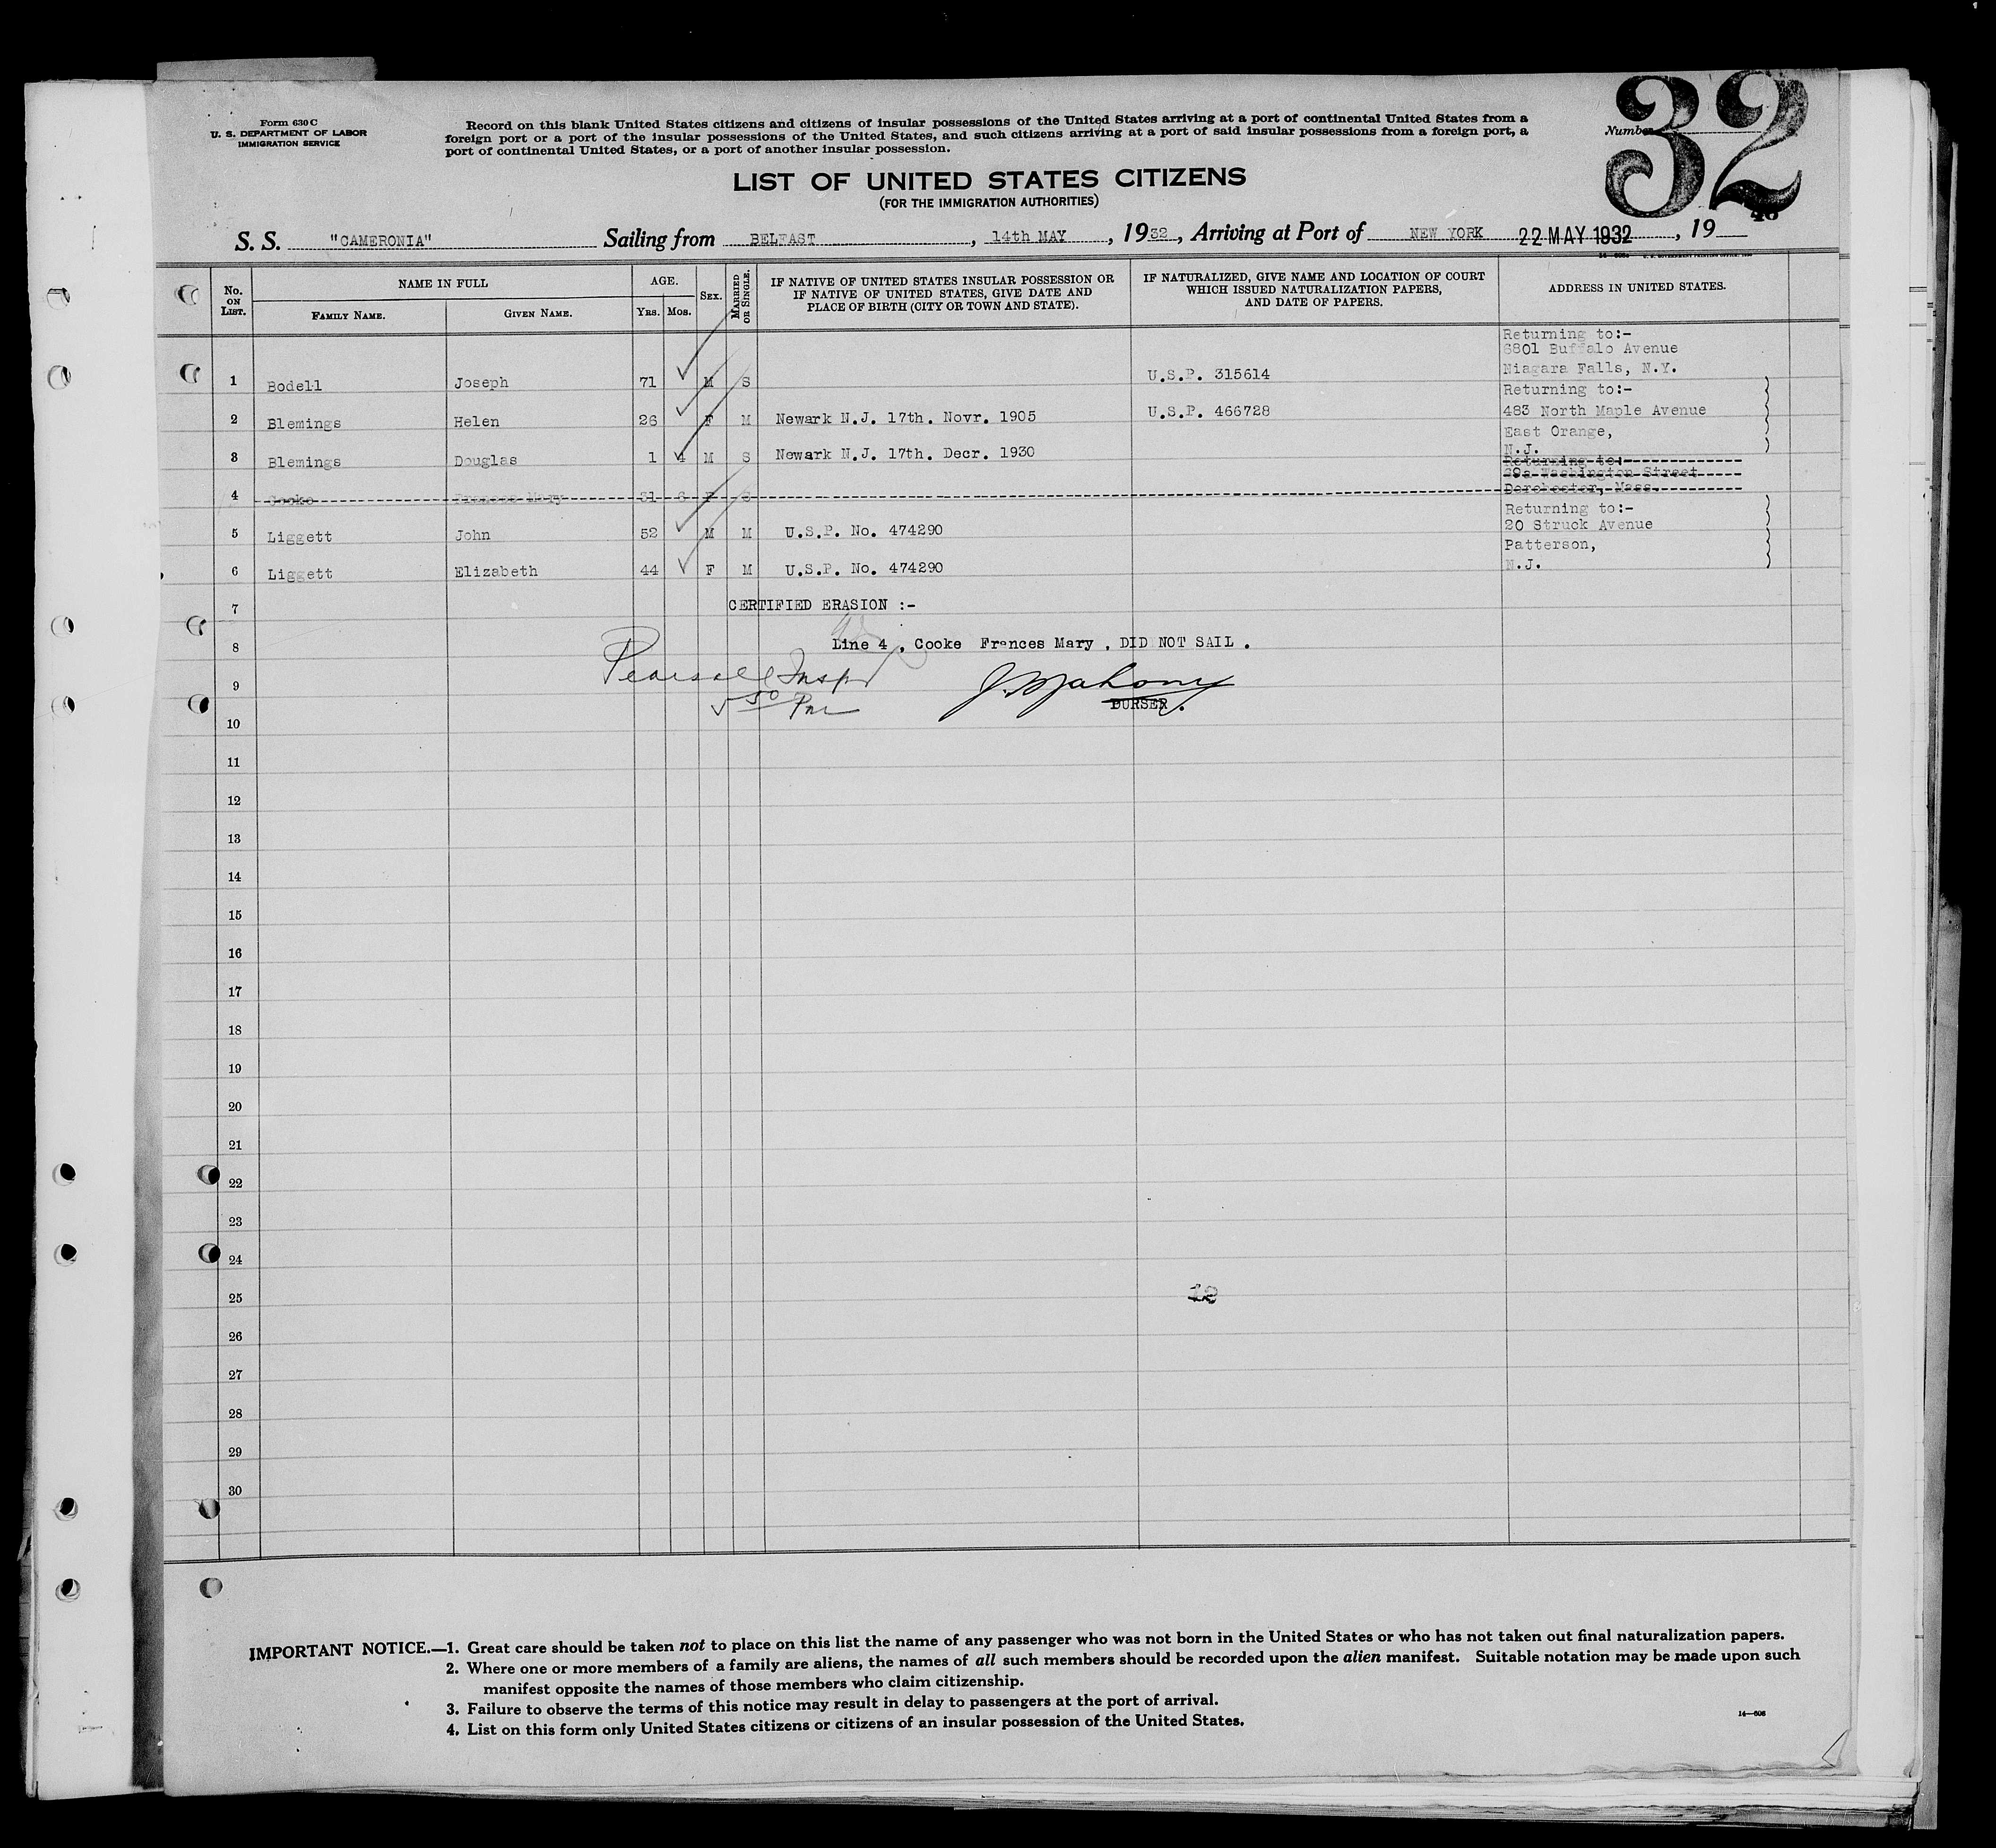 Form 630 C
U. S. DEPARTMENT OF LABOR
IMMIGRATION SERVICE
Record on this blank United States citizens and citizens of insular possessions of the United States arriving at a port of continental United States from a
foreign port or a port of the insular possessions of the United States, and such citizens arriving at a port of said insular possessions from a foreign port, a
port of continental United States, or a port of another insular possession.
Number
32
LIST OF UNITED STATES CITIZENS
(FOR THE IMMIGRATION AUTHORITIES)
S. S. "CAMERONIA" Sailing from BELFAST, 14th MAY, 1932, Arriving at Port of NEW YORK 22 MAY 1932, 19
No. ON LIST.
NAME IN FULL
FAMILY NAME. GIVEN NAME.
AGE.
YRS. MOS.
SEX.
MARRIED OR SINGLE.
IF NATIVE OF UNITED STATES INSULAR POSSESSION OR
IF NATIVE OF UNITED STATES, GIVE DATE AND
PLACE OF BIRTH (CITY OR TOWN AND STATE).
IF NATURALIZED, GIVE NAME AND LOCATION OF COURT
WHICH ISSUED NATURALIZATION PAPERS,
AND DATE OF PAPERS.
ADDRESS IN UNITED STATES.
Returning to:-
6801 Buffalo Avenue
Niagara Falls, N.Y.
1 Bodell Joseph 71 M S U.S.P. 315614
Returning to:-
2 Blemings Helen 26 F M Newark N.J. 17th. Novr. 1905 U.S.P. 466728 483 North Maple Avenue
East Orange,
N.J.
3 Blemings Douglas 1 4 M S Newark N.J. 17th. Decr. 1930
Returning to:-
39a Washington Street
Dorchester, Mass.
4 Cooke Frances Mary 31 6 F S
Returning to:-
5 Liggett John 52 M M U.S.P. No. 474290 20 Struck Avenue
Patterson,
6 Liggett Elizabeth 44 F M U.S.P. No. 474290 N.J.
7 CERTIFIED ERASION :-
8 Line 4 , Cooke Frances Mary , DID NOT SAIL .
Pearsall Inspr
9 J. Mahony
5 50 Pm
PURSER .
10
11
12
13
14
15
16
17
18
19
20
21
22
23
24
25
26
27
28
29
30
IMPORTANT NOTICE.—1. Great care should be taken not to place on this list the name of any passenger who was not born in the United States or who has not taken out final naturalization papers.
2. Where one or more members of a family are aliens, the names of all such members should be recorded upon the alien manifest. Suitable notation may be made upon such
manifest opposite the names of those members who claim citizenship.
3. Failure to observe the terms of this notice may result in delay to passengers at the port of arrival.
4. List on this form only United States citizens or citizens of an insular possession of the United States.
14—608